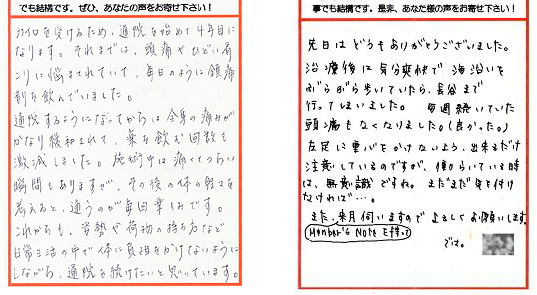 でも結構です。ぜひ、あなたの声をお寄せ下さい！
カイロを受けるため、通院を始めて4年目に
なります。それまでは、頭痛やひどい肩
こりに悩まされていて、毎日のように鎮痛
剤を飲んでいました。
通院するようになってからは全身の痛みが
かなり緩和されて、薬を飲む回数も
激減しました。施術中は痛くてつらい
瞬間もありますが、その後の体の軽さを
考えると、通うのが毎回楽しみです。
これからも、姿勢や荷物の持ち方など
日常生活の中で体に負担をかけないように
しながら、通院を続けたいと思っています。
事でも結構です。是非、あなた様の声をお寄せ下さい！
先日はどうもありがとうございました。
治療後は気分爽快で海沿いを
ぶらぶら歩いていたら、長谷まで
行ってしまいました。毎週続いていた
頭痛もなくなりました。（良かった。）
左足に重心をかけないよう、出来るだけ
注意しているのですが、
は、無意識ですね。まだまだ気を付け
なければ…。
また、来月伺いますのでよろしくお願いします。
Member's Note を持って
では。